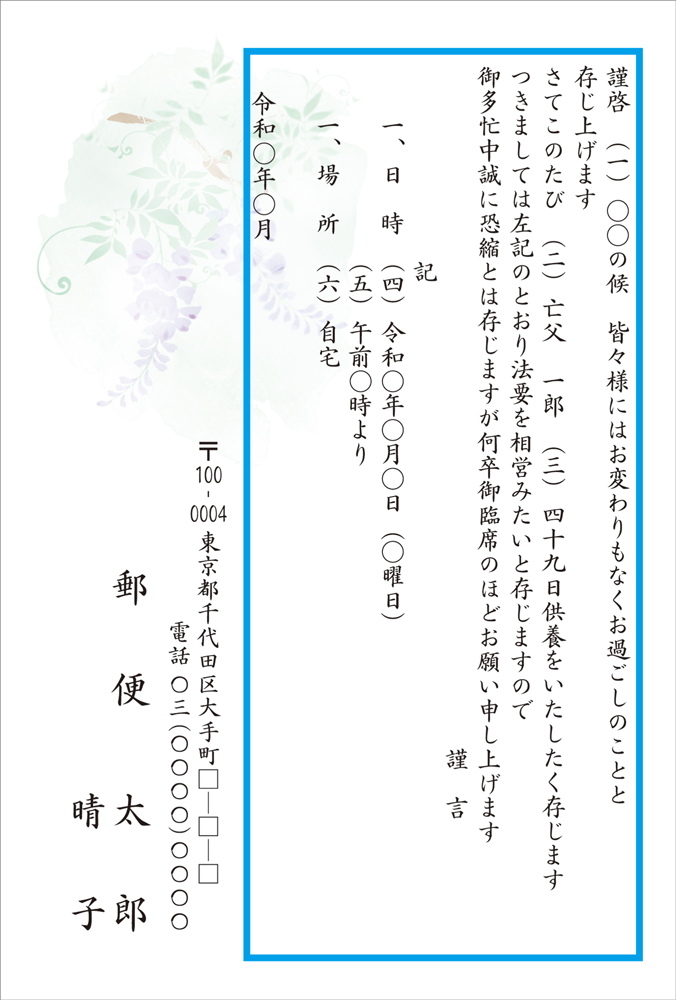 謹啓　（一）　〇〇の候　皆々様にはお変わりもなくお過ごしのことと
存じ上げます
さてこのたび　（二）亡父　一郎　（三）　四十九日供養をいたしたく存じます
つきましては左記のとおり法要を相営みたいと存じますので
御多忙中誠に恐縮とは存じますが何卒御臨席のほどお願い申し上げます
謹　言
記
一、日　時　（四）令和〇年〇月〇日（〇曜日）
（五）午前〇時より
一、場　所　（六）自宅
令和〇年〇月
〒100-0004　東京都千代田区大手町□―□―□
電話　〇三（〇〇〇〇）〇〇〇〇
郵　便　太　郎
晴　子